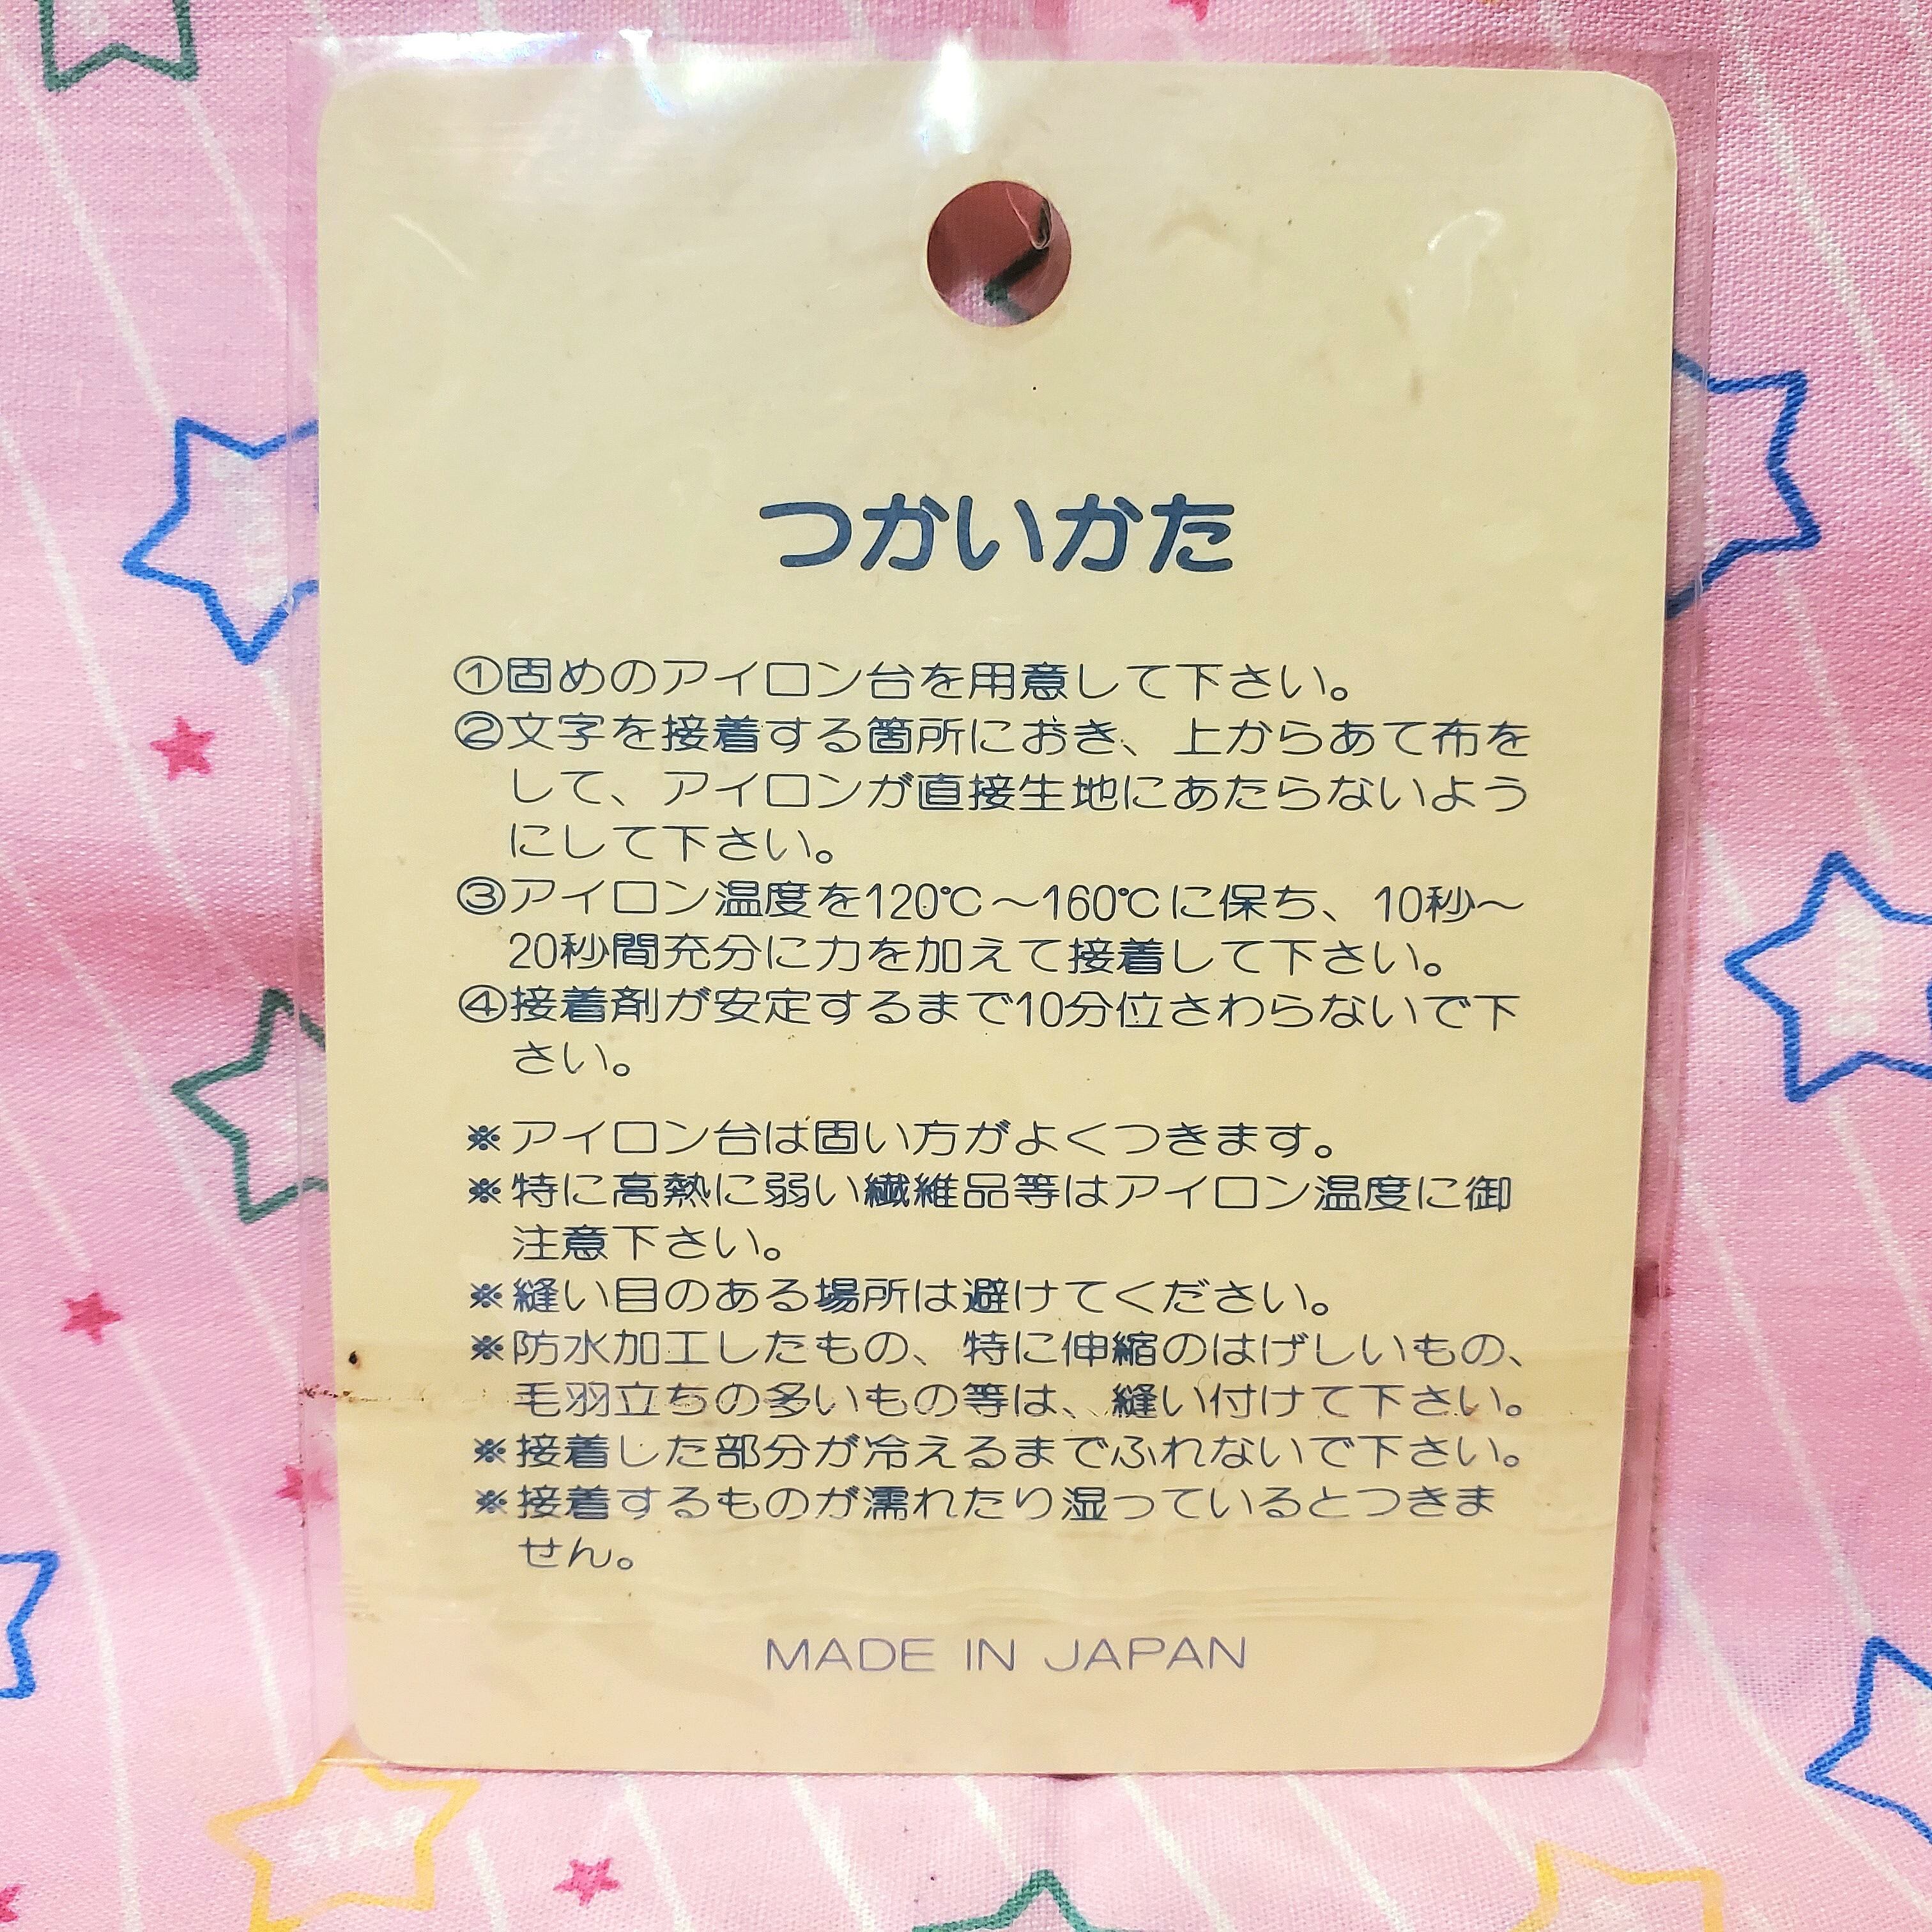 つかいかた
①固めのアイロン台を用意して下さい。
②文字を接着する箇所におき、上からあて布を
して、アイロンが直接生地にあたらないよう
にして下さい。
③アイロン温度を120℃～160℃に保ち、10秒～
20秒間充分に力を加えて接着して下さい。
④接着剤が安定するまで10分位さわらないで下
さい。
※アイロン台は固い方がよくつきます。
※特に高熱に弱い繊維品等はアイロン温度に御
注意下さい。
※縫い目のある場所は避けてください。
※防水加工したもの、特に伸縮のはげしいもの、
毛羽立ちの多いもの等は、縫い付けて下さい。
※接着した部分が冷えるまでふれないで下さい。
※接着するものが濡れたり湿っているとつきま
せん。
MADE IN JAPAN
STAR